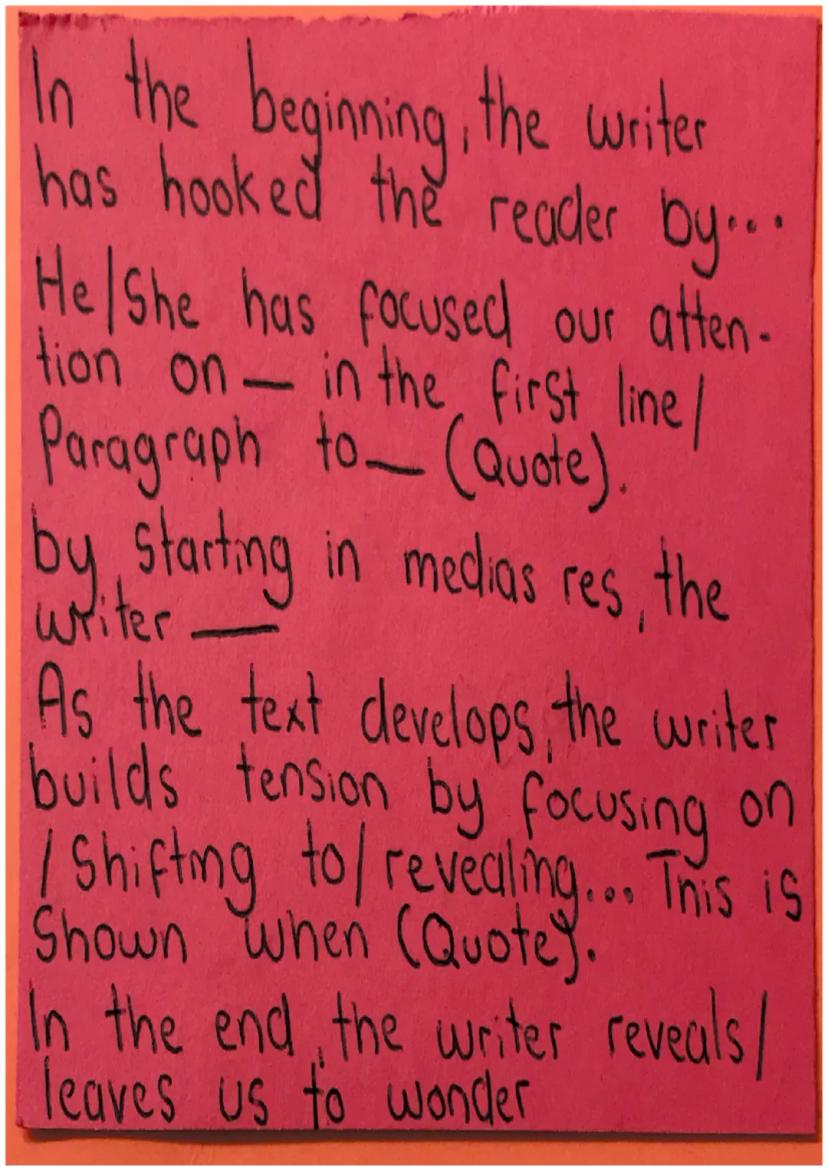 In the beginning, the writer
has hooked the reader by...
He/She has focused our atten-
tion on — in the first line/
Paragraph to — (Quote).
by starting in medias res, the
writer —
As the text develops, the writer
builds tension by focusing on
/ Shifting to/ revealing... This is
Shown when (Quote).
In the end, the writer reveals/
leaves us to wonder